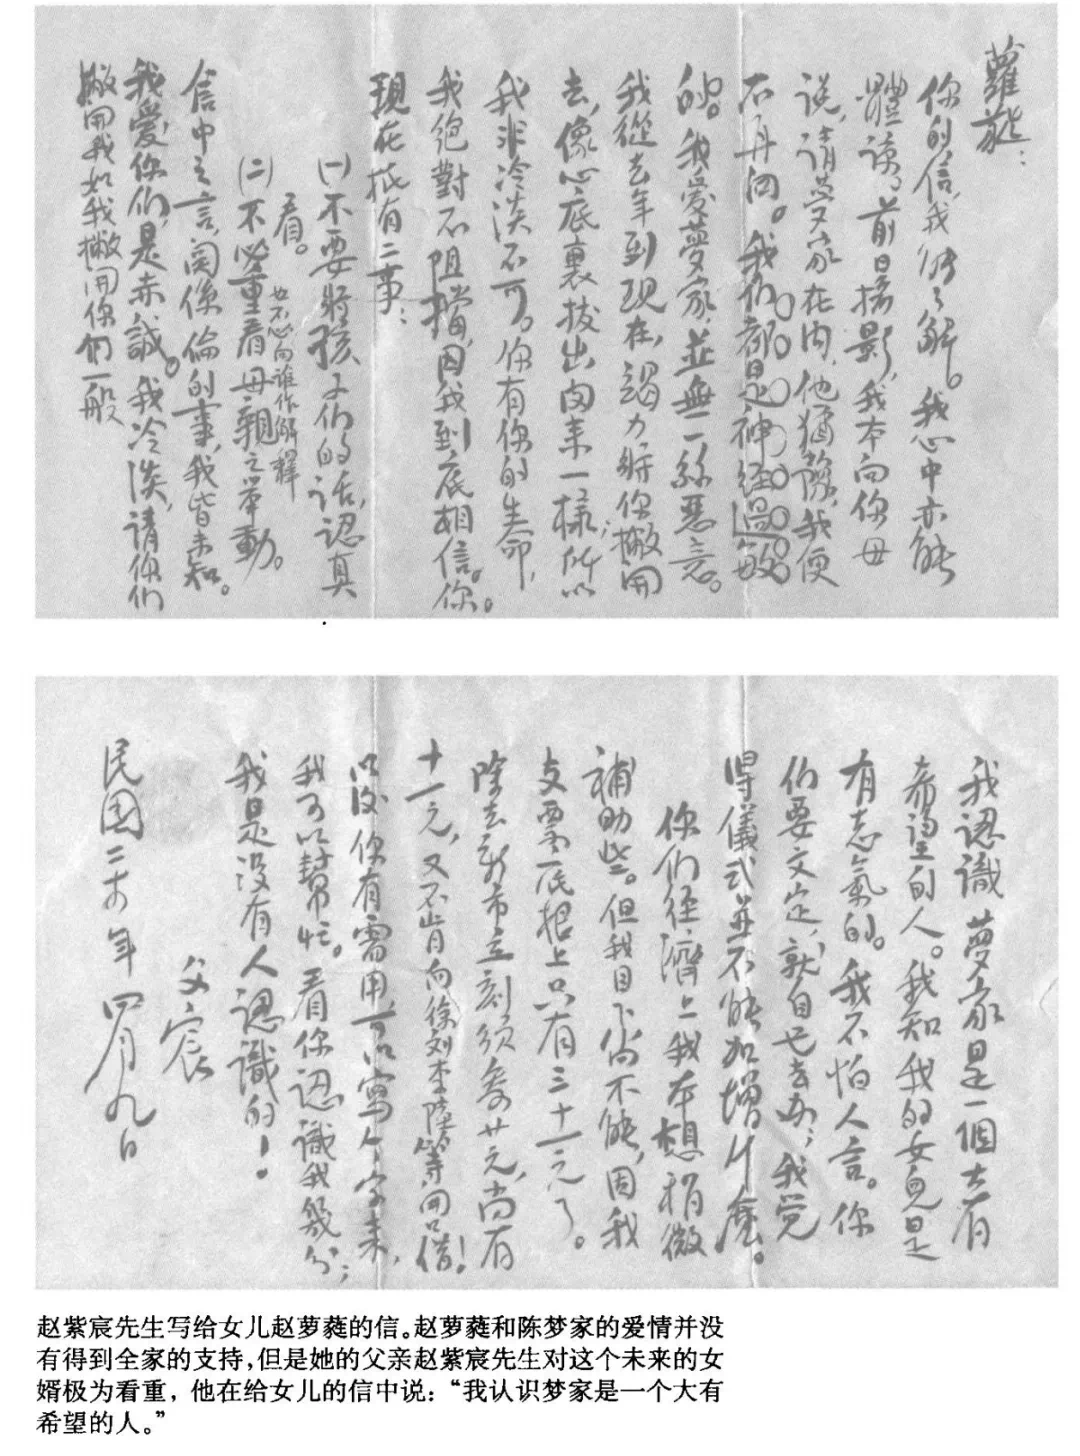 蘿蕤：
你的信，我能了解。我心中亦能
體諒。前日摄影，我本向你母
说，请梦家在内，他猶豫，我便
不再问。我们都是神经過敏
的。我爱夢家，並無一絲惡意。
我從去年到现在，竭力將你撇開
去，像心底裏拔出肉来一樣；所以
我非冷淡不可。你有你的生命，
我绝對不阻擋，因我到底相信你。
現在祇有二事：
㈠不要將孩子们的话，認真
看。
㈡不必重看母親之举動。
也不必向谁作解释
信中之言，関係倫的事，我皆未知。
我愛你们，是赤誠。我冷淡，請你们
撇開我如我撇開你们一般
我認識夢家是一個大有
希望的人。我知我的女兒是
有志氣的。我不怕人言。你
们要文定，就自己去办；我觉
得儀式並不能加增什麼。
你们经濟上我本想稍微
補助些。但我目下尚不能，因我
支票底根上只有三十一元了。
除去新市立刻须務廿元，尚有
十一元，又不肯向徐刘李陸等開口借！
以後你有需用，可以寫个字来，
我可以幫忙。看你認識我幾分；
我是没有人認識的！
父宸
民國二十五年四月九日
赵紫宸先生写给女儿赵萝蕤的信。赵萝蕤和陈梦家的爱情并没
有得到全家的支持，但是她的父亲赵紫宸先生对这个未来的女
婿极为看重，他在给女儿的信中说：“我认识梦家是一个大有
希望的人。”